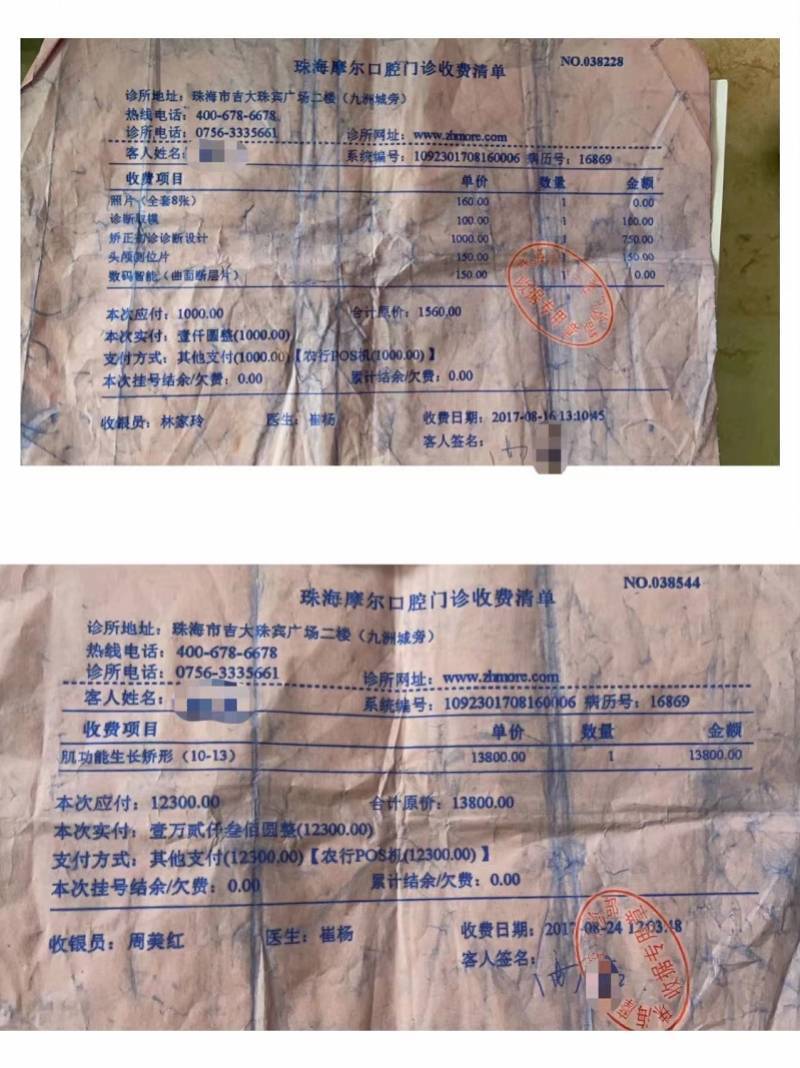 珠海摩尔口腔门诊收费清单 NO.038228
诊所地址：珠海市吉大珠宾广场二楼（九洲城旁）
热线电话：400-678-6678
诊所电话：0756-3335661 诊所网址：www.zhmore.com
客人姓名： 系统编号：1092301708160006 病历号：16869
收费项目 单价 数量 金额
照片（全套8张） 160.00 1 0.00
诊断取模 100.00 1 100.00
矫正初诊诊断设计 1000.00 1 750.00
头颅侧位片 150.00 1 150.00
数码智能（曲面断层片） 150.00 1 0.00
本次应付：1000.00 合计原价：1560.00
本次实付：壹仟圆整(1000.00)
支付方式：其他支付(1000.00)【农行POS机(1000.00)】
本次挂号结余/欠费：0.00 累计结余/欠费：0.00
收银员：林家玲 医生：崔杨 收费日期：2017-08-16 13:10:45
客人签名：
收据专用章
珠海摩尔口腔门诊收费清单 NO.038544
诊所地址：珠海市吉大珠宾广场二楼（九洲城旁）
热线电话：400-678-6678
诊所电话：0756-3335661 诊所网址：www.zhmore.com
客人姓名： 系统编号：1092301708160006 病历号：16869
收费项目 单价 数量 金额
肌功能生长矫形（10-13） 13800.00 1 13800.00
本次应付：12300.00 合计原价：13800.00
本次实付：壹万贰仟叁佰圆整(12300.00)
支付方式：其他支付(12300.00)【农行POS机(12300.00)】
本次挂号结余/欠费：0.00 累计结余/欠费：0.00
收银员：周美红 医生：崔杨 收费日期：2017-08-24 12:03:48
客人签名：
收据专用章